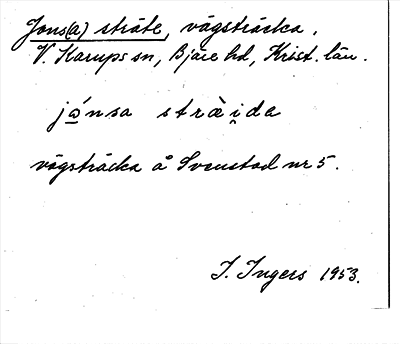 Jons(a) stråte, vägsträcka.
V. Karups sn, Bjäre hd, Krist. län.
jó̲nsa strài̯da
vägsträcka å Svenstad nr 5.
I. Ingers 1953.